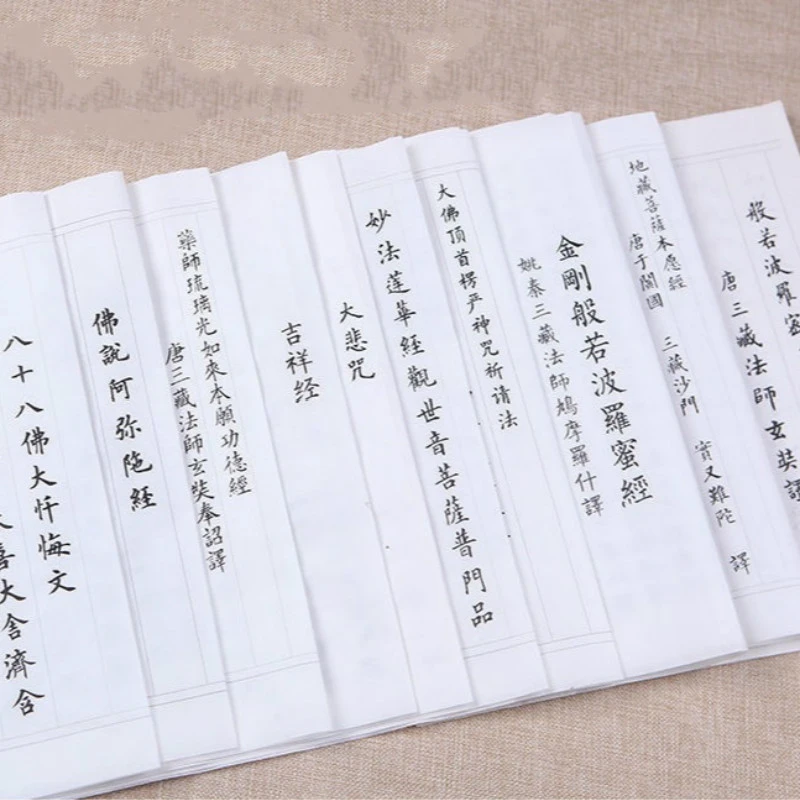 般若波羅
唐三藏法師玄奘譯
地藏菩薩本愿經
唐于闐國 三藏沙門 實叉難陀 譯
金剛般若波羅蜜經
姚秦三藏法師鳩摩羅什譯
大佛頂首楞严神咒祈请法
妙法蓮華經觀世音菩薩普門品
大悲咒
吉祥经
藥師琉璃光如來本願功德經
唐三藏法師玄奘奉詔譯
佛說阿弥陀經
八十八佛大忏悔文
喜大舍濟含